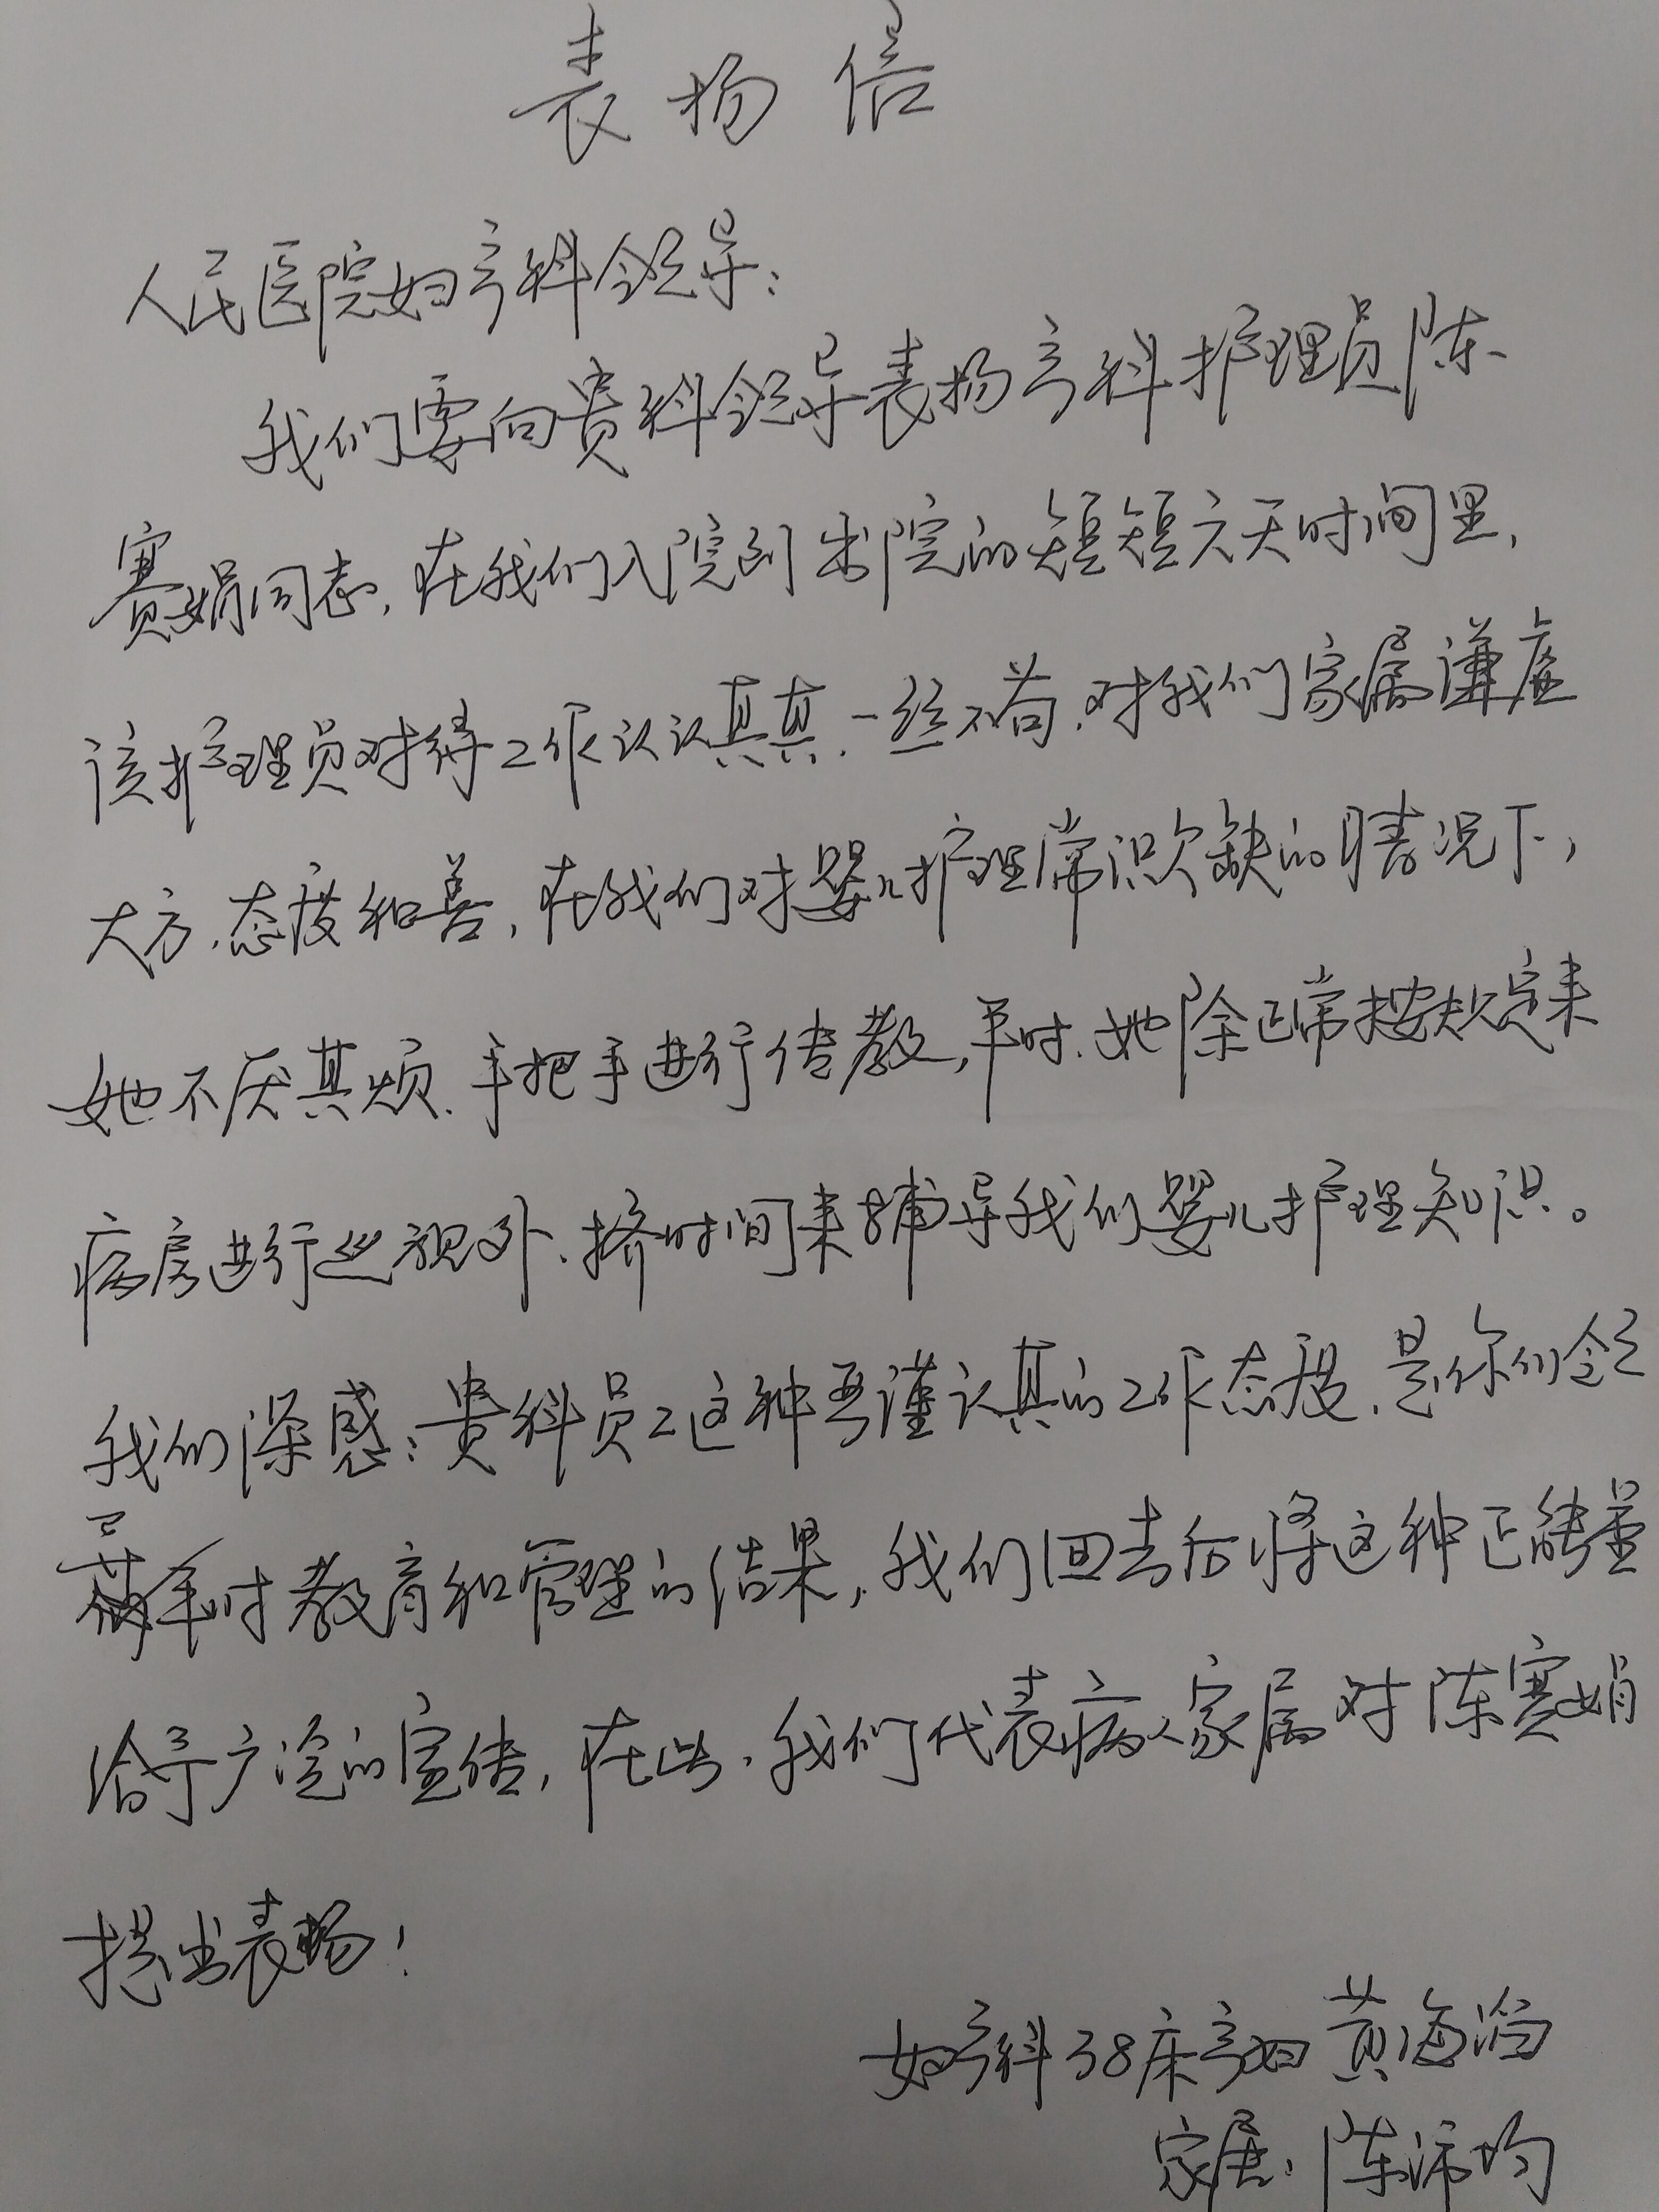 表扬信
人民医院妇产科领导：
我们要向贵科领导表扬产科护理员陈
赛娟同志，在我们入院到出院的短短六天时间里，
该护理员对待工作认认真真、一丝不苟，对我们家属谦虚
大方、态度和善，在我们对婴儿护理常识欠缺的情况下，
她不厌其烦、手把手进行传教，平时，她除正常按规定来
病房进行巡视外、挤时间来辅导我们婴儿护理知识。
我们深感：贵科员工这种严谨认真的工作态度，是你们领
导平时教育和管理的结果，我们回去后将这种正能量
给予广泛的宣传，在此，我们代表病人家属对陈赛娟
提出表扬！
妇产科38床产妇黄海
家属：陈沛均